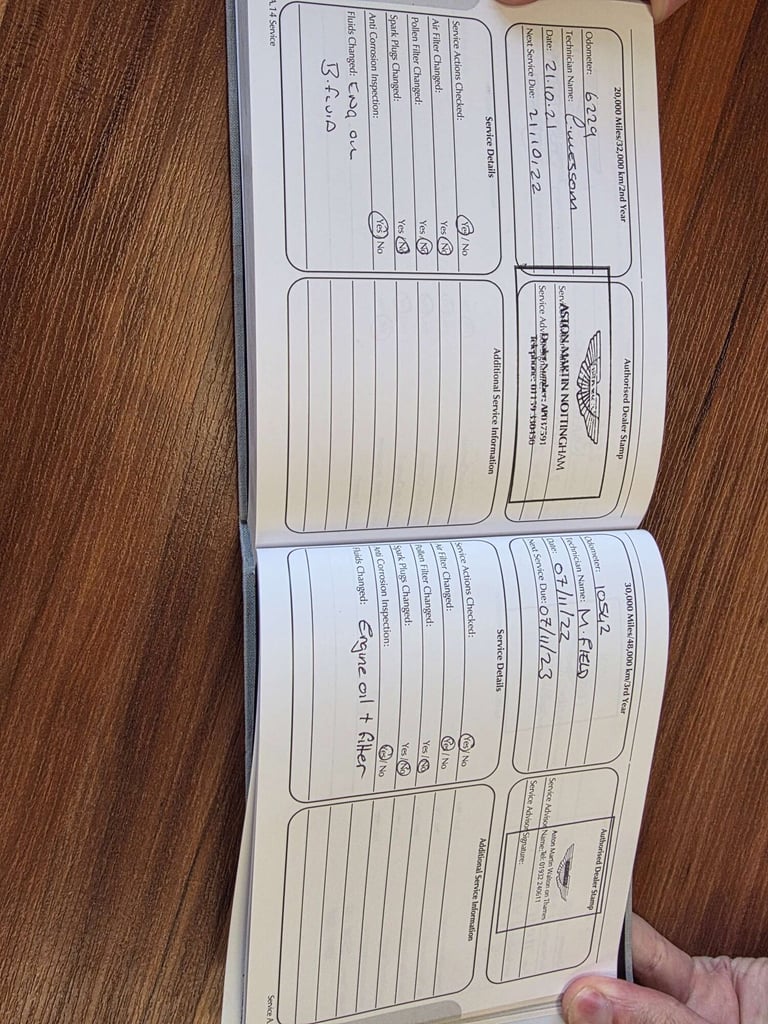 20,000 Miles/32,000 km/2nd Year
Odometer: 6229
Technician Name:
Date: 21.10.21
Next Service Due: 21/10/22
Authorised Dealer Stamp
ASTON MARTIN NOTTINGHAM
Service Details
Service Actions Checked: Yes / No
Air Filter Changed: Yes / No
Pollen Filter Changed: Yes / No
Spark Plugs Changed: Yes / No
Anti Corrosion Inspection: Yes / No
Fluids Changed: ENG OIL
B.FLUID
Additional Service Information
A.14 Service
30,000 Miles/48,000 km/3rd Year
Odometer: 10542
Technician Name: M.FIELD
Date: 07/11/22
Next Service Due: 07/11/23
Authorised Dealer Stamp
Aston Martin Walton on Thames
Service Advisor Name: Tel: 01932 240611
Service Advisor Signature:
Service Details
Service Actions Checked: Yes / No
Air Filter Changed: Yes / No
Pollen Filter Changed: Yes / No
Spark Plugs Changed: Yes / No
Anti Corrosion Inspection: Yes / No
Fluids Changed: Engine oil + filter
Additional Service Information
Service A